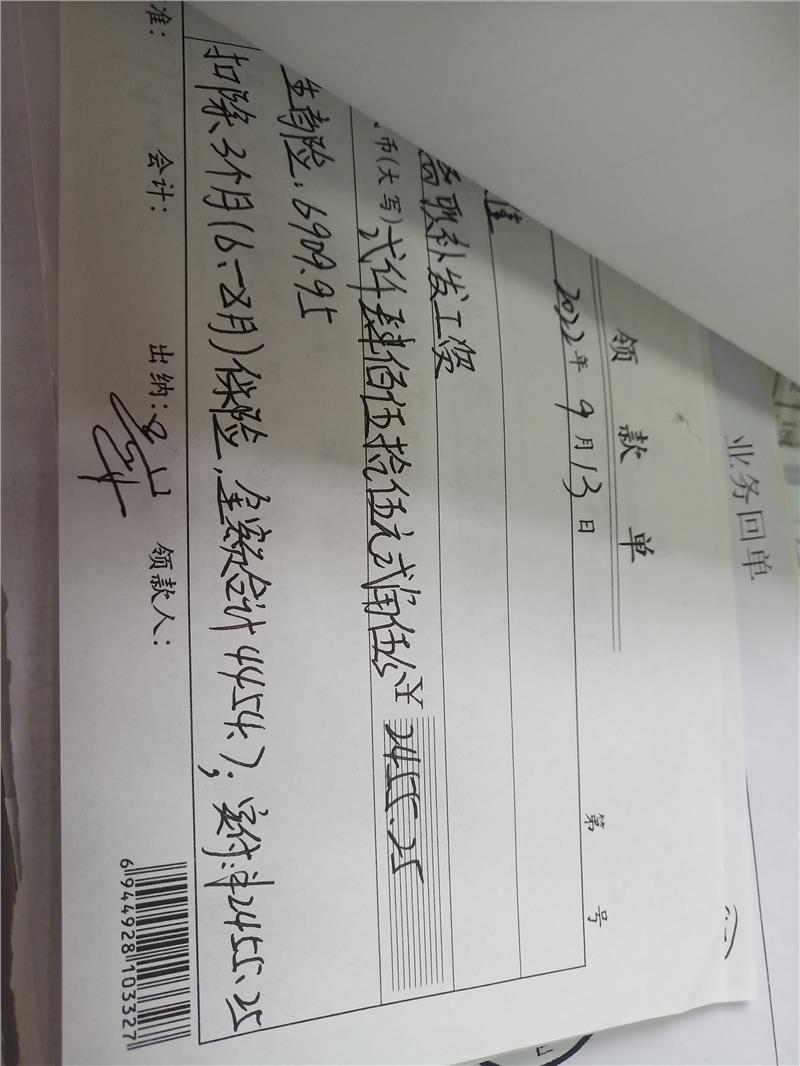 业务回单
领款单
2022年9月13日
第 号
离职补发工资
币(大写)弍仟肆佰伍拾伍元弍角伍分 ¥2455.25
生育险:6909.95
扣除3个月(6-8月)保险,金额合计4454.7,实付:¥2455.25
准: 会计: 出纳: 领款人:
6944928103327